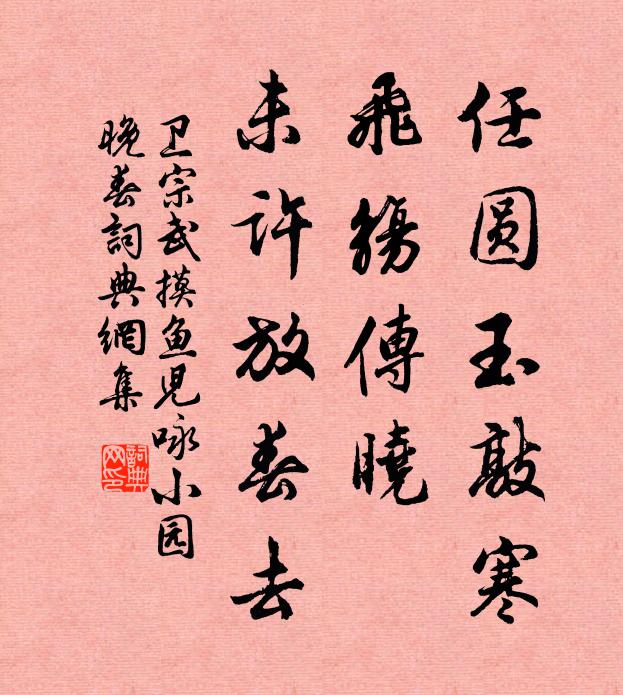 任圆玉敲寒
飛觴傳曉
未許放春去
卫宗武摸鱼児咏小园
晚春詞典網集
詞典网印